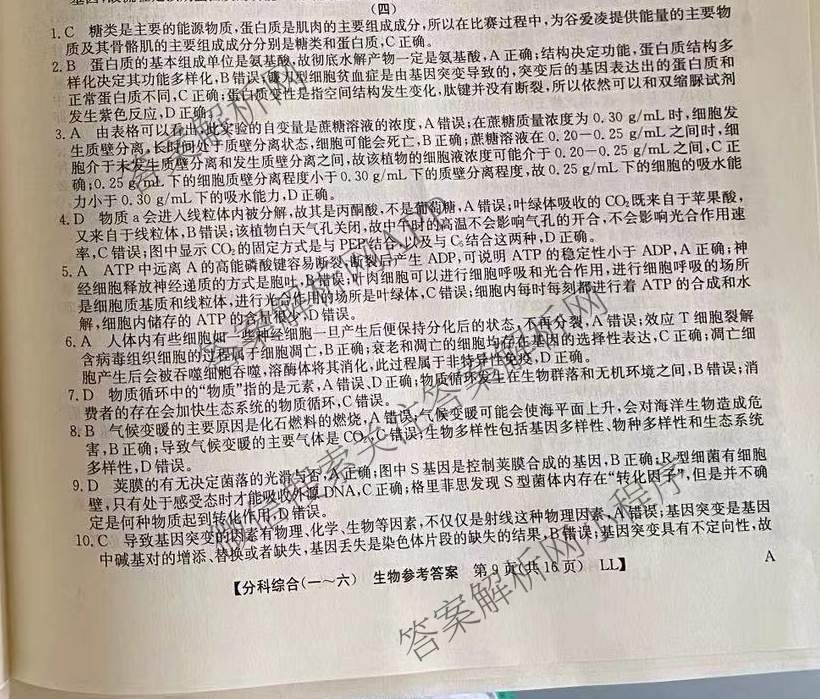 (四)
1.C 糖类是主要的能源物质,蛋白质是肌肉的主要组成成分,所以在比赛过程中,为谷爱凌提供能量的主要物
质及其骨骼肌的主要组成成分分别是糖类和蛋白质,C正确。
2.B 蛋白质的基本组成单位是氨基酸,故彻底水解产物一定是氨基酸,A正确;结构决定功能,蛋白质结构多
样化决定其功能多样化,B错误;镰刀型细胞贫血症是由基因突变导致的,突变后的基因表达出的蛋白质和
正常蛋白质不同,C正确;蛋白质变性是指空间结构发生变化,肽键并没有断裂,所以依然可以和双缩脲试剂
发生紫色反应,D正确。
3.A 由表格可以看出,此实验的自变量是蔗糖溶液的浓度,A错误;在蔗糖质量浓度为0.30 g/mL时,细胞发
生质壁分离,长时间处于质壁分离状态,细胞可能会死亡,B正确;蔗糖溶液在0.20—0.25 g/mL之间时,细
胞介于未发生质壁分离和发生质壁分离之间,故该植物的细胞液浓度可能介于0.20-0.25 g/mL之间,C正
确;0.25 g/mL下的细胞质壁分离程度小于0.30 g/mL下的质壁分离程度,故0.25 g/mL下的细胞的吸水能
力小于0.30 g/mL下的吸水能力,D正确。
4.D 物质a会进入线粒体内被分解,故其是丙酮酸,不是葡萄糖,A错误;叶绿体吸收的CO₂既来自于苹果酸,
又来自于线粒体,B错误;该植物白天气孔关闭,故中午时的高温不会影响气孔的开合,不会影响光合作用速
率,C错误;图中显示CO₂的固定方式是与PEP结合以及与C₅结合这两种,D正确。
5.A ATP中远离A的高能磷酸键容易断裂,断裂后产生ADP,可说明ATP的稳定性小于ADP,A正确;神
经细胞释放神经递质的方式是胞吐,B错误;叶肉细胞可以进行细胞呼吸和光合作用,进行细胞呼吸的场所
是细胞质基质和线粒体,进行光合作用的场所是叶绿体,C错误;细胞内每时每刻都进行着ATP的合成和水
解,细胞内储存的ATP的含量很少,D错误。
6.A 人体内有些细胞如一些神经细胞一旦产生后便保持分化后的状态,不再分裂,A错误;效应T细胞裂解
含病毒组织细胞的过程属于细胞凋亡,B正确;衰老和凋亡的细胞均存在基因的选择性表达,C正确;凋亡细
胞产生后会被吞噬细胞吞噬,溶酶体将其消化,此过程属于非特异性免疫,D正确。
7.D 物质循环中的“物质”指的是元素,A错误、D正确;物质循环发生在生物群落和无机环境之间,B错误;消
费者的存在会加快生态系统的物质循环,C错误。
8.B 气候变暖的主要原因是化石燃料的燃烧,A错误;气候变暖可能会使海平面上升,会对海洋生物造成危
害,B正确;导致气候变暖的主要气体是CO₂,C错误;生物多样性包括基因多样性、物种多样性和生态系统
多样性,D错误。
9.D 荚膜的有无决定菌落的光滑与否,A正确;图中S基因是控制荚膜合成的基因,B正确;R型细菌有细胞
壁,只有处于感受态时才能吸收外源DNA,C正确;格里菲思发现S型菌体内存在“转化因子”,但是并不确
定是何种物质起到转化作用,D错误。
10.C 导致基因突变的因素有物理、化学、生物等因素,不仅仅是射线这种物理因素,A错误;基因突变是基因
中碱基对的增添、替换或者缺失,基因丢失是染色体片段的缺失的结果,B错误;基因突变具有不定向性,故
【分科综合(一~六) 生物参考答案 第9页(共16页) LL】
A
答案解析网
答案解析网